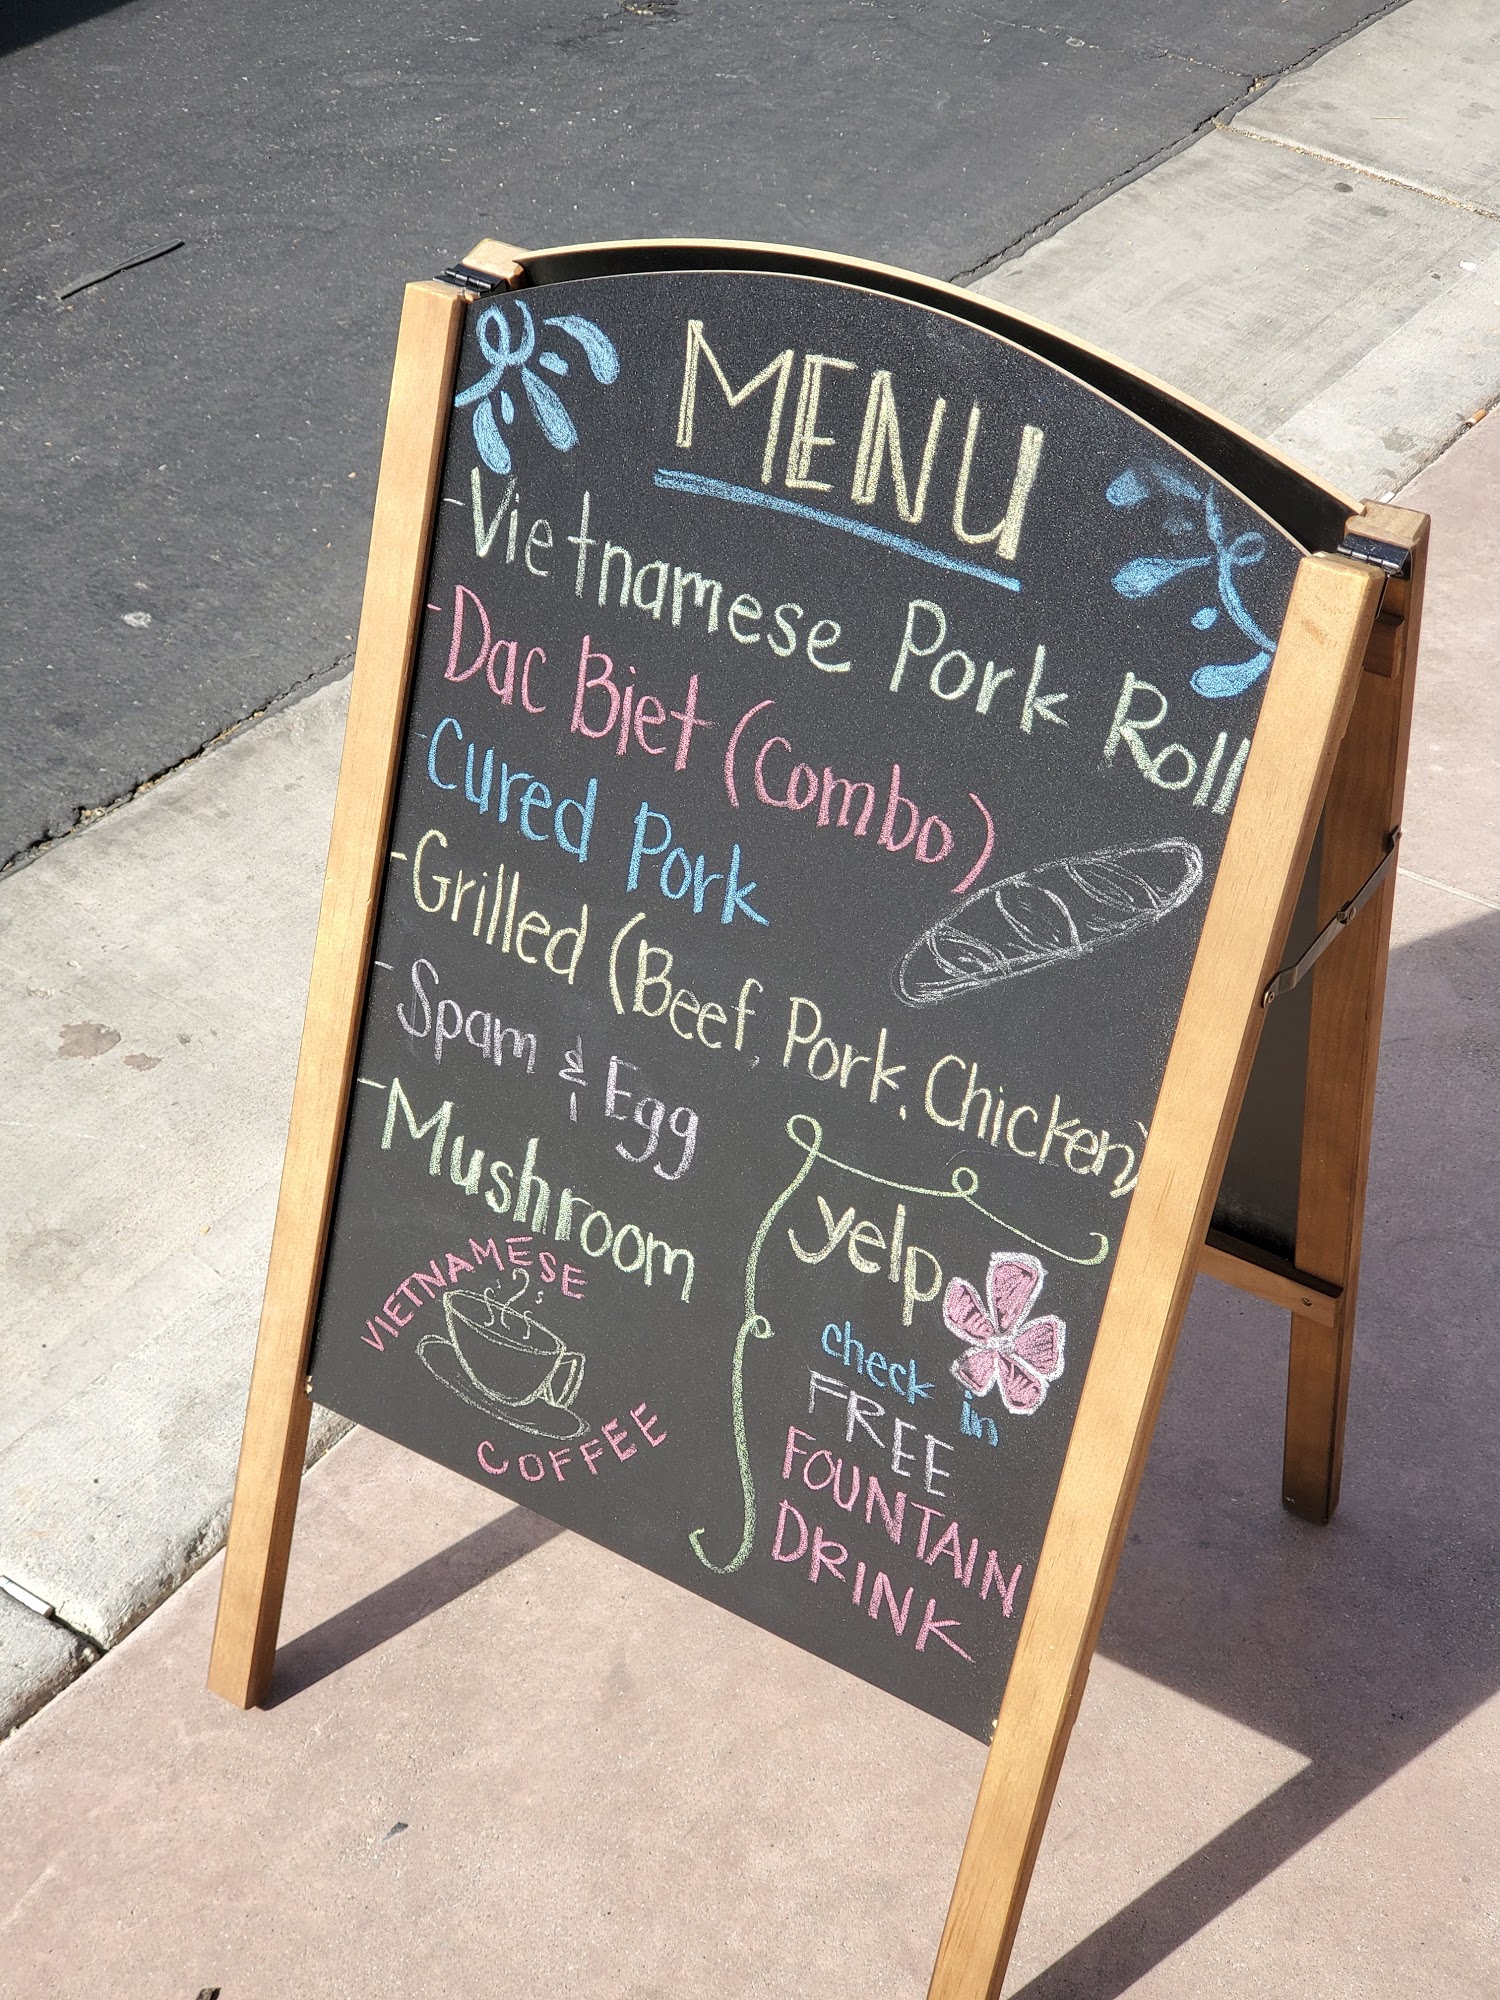 MENU
-Vietnamese Pork Roll
-Dac Biet (Combo)
-Cured Pork
-Grilled (Beef, Pork, Chicken)
-Spam & Egg
-Mushroom
VIETNAMESE
COFFEE
yelp
check in
FREE
FOUNTAIN
DRINK